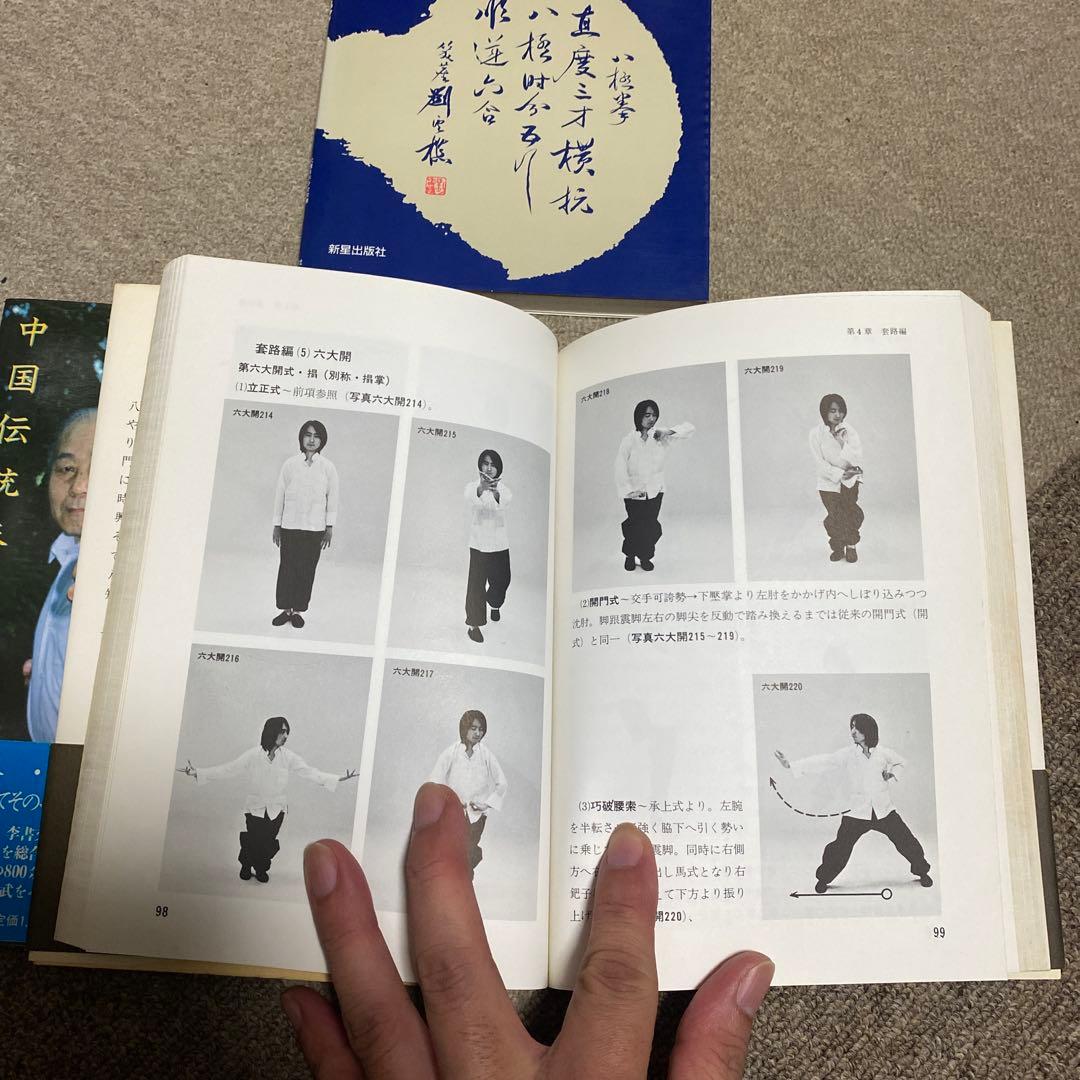 八極拳
直度三才横抗
八極时分五行
順逆六合
笑塵劉雲樵
新星出版社
中国伝統
八
や
り
門
に
時
興
そ
て
てその
李書
を総合
800
武を
定価1,
套路編(5)六大開
第六大開式・搨(別称・搨掌)
(1)立正式～前項参照(写真六大開214)。
六大開214
六大開215
六大開216
六大開217
98
第4章 套路編
六大開218
六大開219
(2)開門式～交手可誇勢→下壓掌より左肘をかかげ内へしぼり込みつつ
沈肘。脚跟震脚左右の脚尖を反動で踏み換えるまでは従来の開門式(開
式)と同一(写真六大開215～219)。
六大開220
(3)巧破腰祟～承上式より。左腕
を半転さ 強く脇下へ引く勢い
に乗じ 震脚。同時に右側
方へ 出し馬式となり右
鈀子 て下方より振り
上げ 開220)、
99